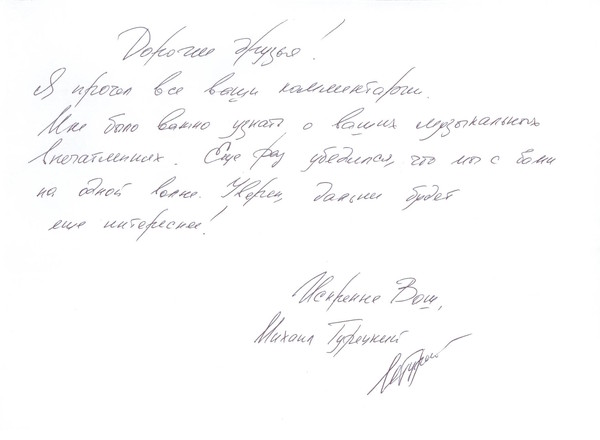 Дорогие друзья!
Я прочёл все ваши комментарии.
Мне было важно узнать о ваших музыкальных
впечатлениях. Еще раз убедился, что мы с вами
на одной волне. Уверен, дальше будет
еще интереснее!
Искренне Ваш,
Михаил Турецкий